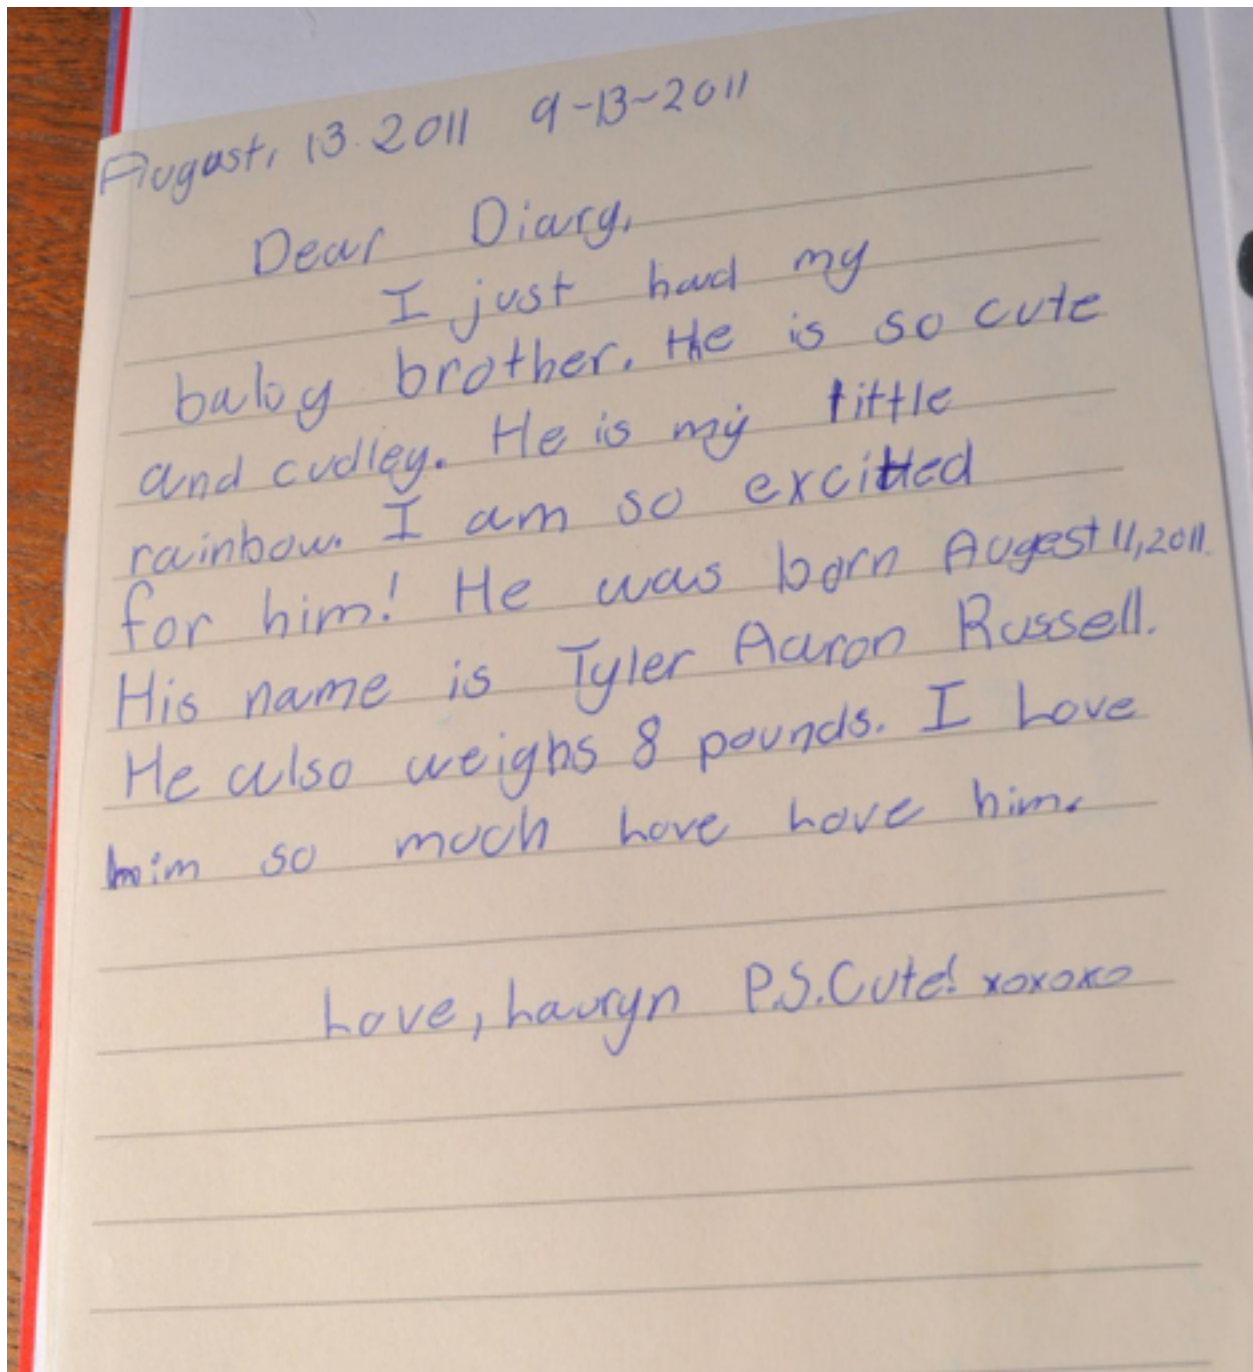 August, 13. 2011 9-13-2011
Dear Diary,
I just had my
baby brother. He is so cute
and cudley. He is my little
rainbow. I am so excitted
for him! He was born Augest 11, 2011.
His name is Tyler Aaron Russell.
He also weighs 8 pounds. I Love
him so much Love Love him.
Love, Lauryn P.S. Cute! xoxoxo